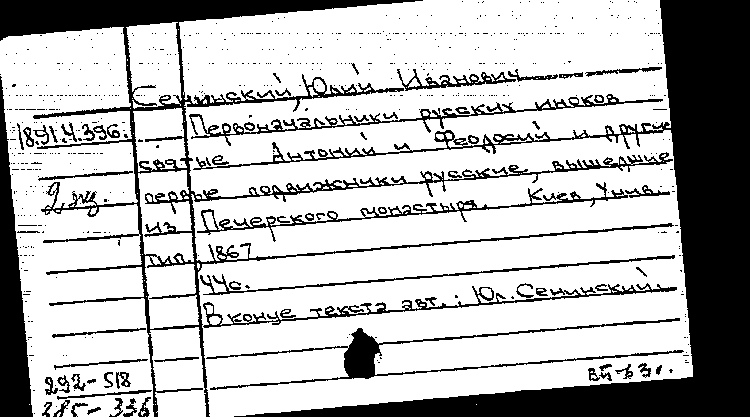 Сенинский, Юлий Иванович
18.91.4.396.
Первоначальники русских иноков
святые Антоний и Феодосий и другие
2 экз.
первые подвижники русские, вышедшие
из Печерского монастыря. Киев, Унив.
тип., 1867.
44с.
В конце текста авт.: Юл. Сенинский.
292-518
285-336